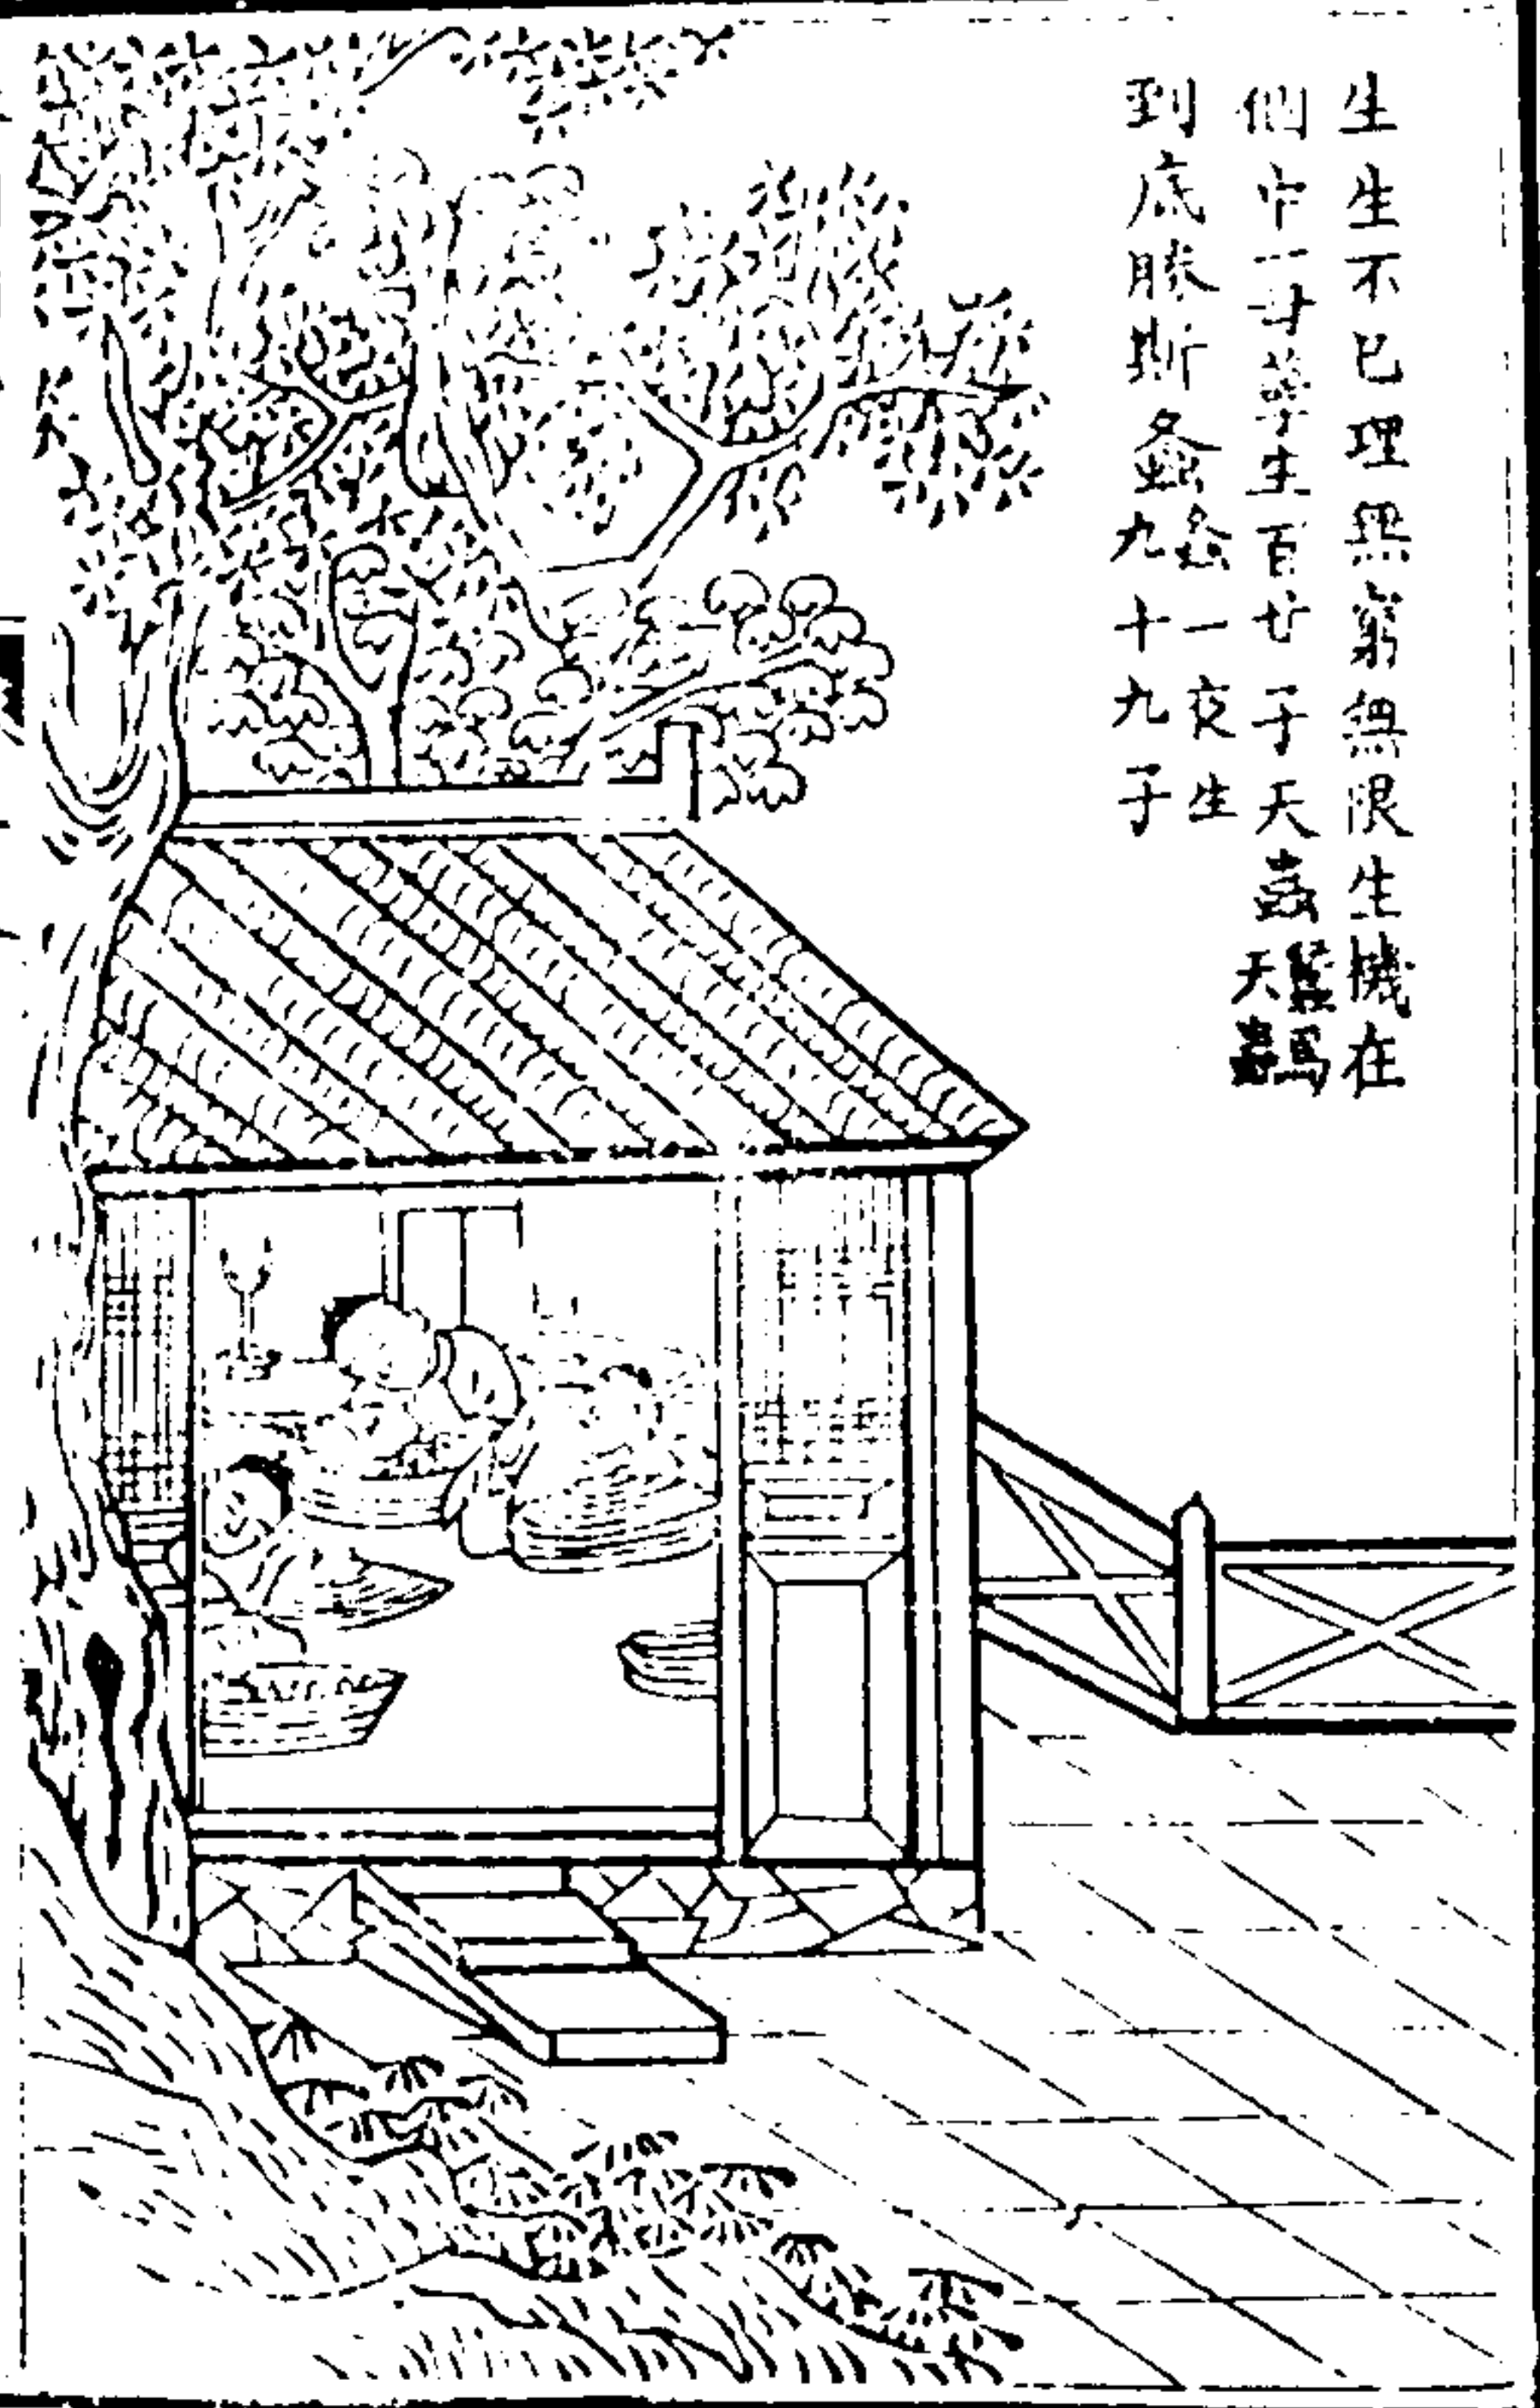 生生不已理無窮無限生機在
個中一生百廿子天蟲
蠶爲
天蟲
到底勝斯螽
螽一夜生
九十九子